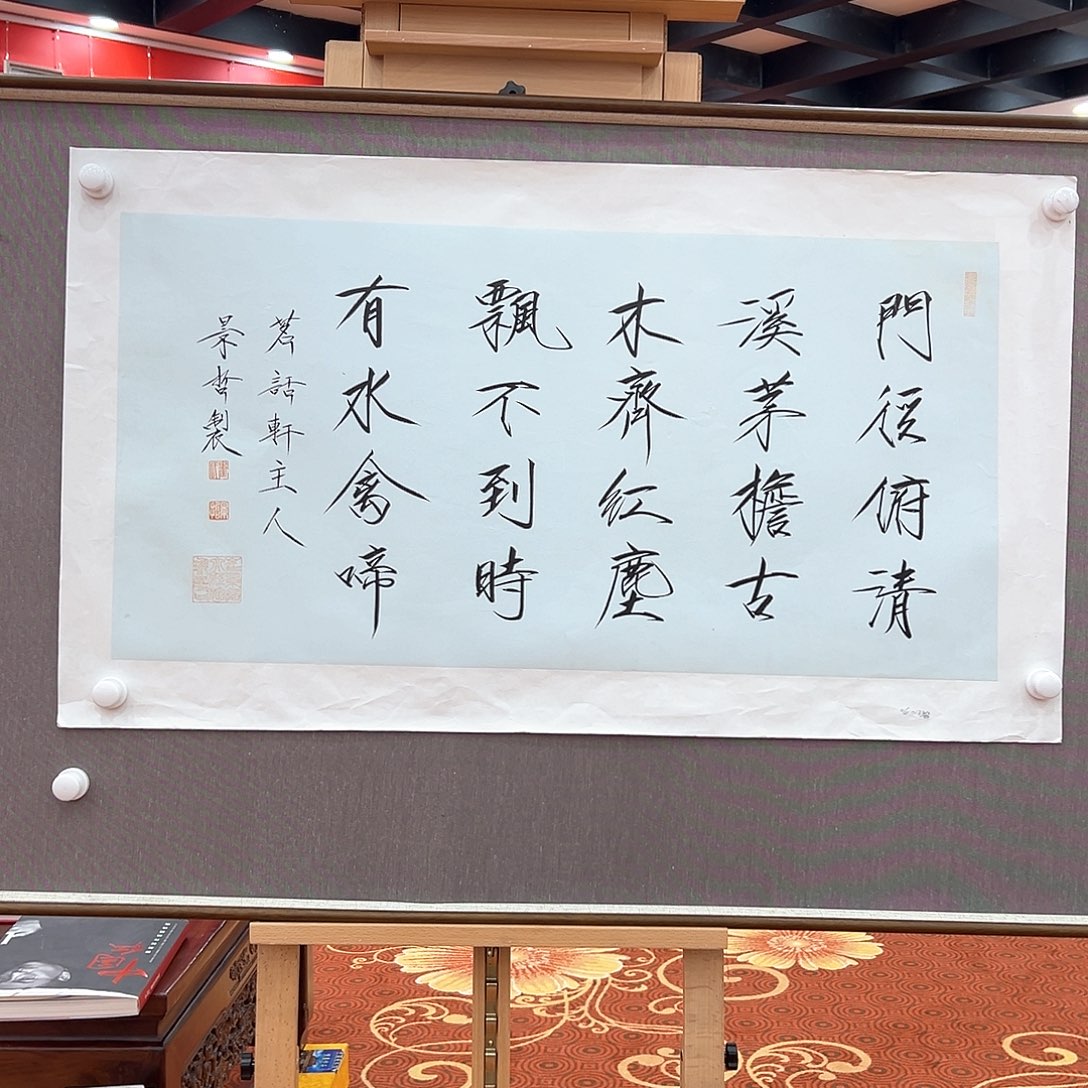 門徑俯清
溪茅檐古
木齊紅塵
飄不到時
有水禽啼
茗話軒主人
景哲製
中国